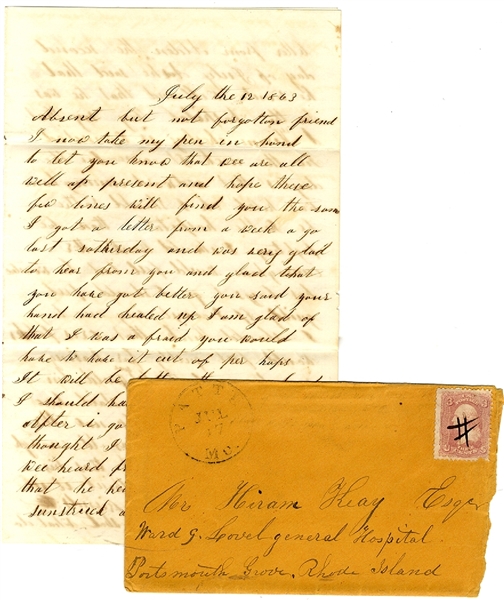 July the 12 1863
Absent but not forgotton friend
I now take my pen in hand
to let you know that wee are all
well up present and hope these
few lines will find you the sam
I got a letter from a week a go
last satherday and was very glad
to hear from you and glad that
you have got better you said your
hand had healed up I am glad of
that I was a fraid you would
have to have it cut of per haps
It will be
I should ha
after i go
thought I
wee heard fr
that he he
sunstried a
PITT
JUL
17
Me.
3 3
Mr Hiram Keay Esqr
Ward G. Lovel general Hospital
Portsmouth Grove, Rhode Island